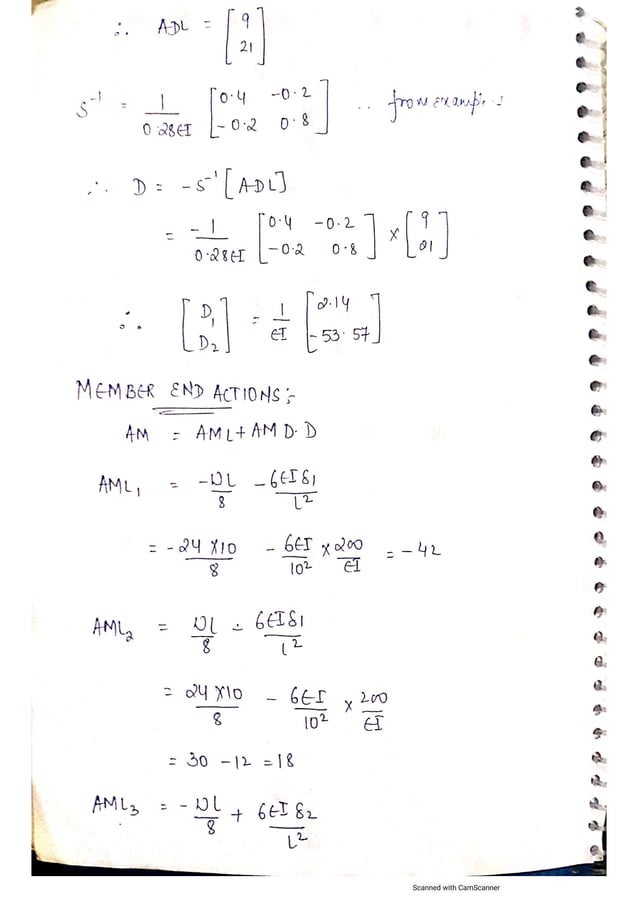 ∴ ADL = [9
21]
S⁻¹ = 1/0.28EI [0.4 -0.2
-0.2 0.8] .. from
∴ D = -S⁻¹ [ADL]
= -1/0.28EI [0.4 -0.2
-0.2 0.8] × [9
21]
∴ [D₁
D₂] = 1/EI [2.14
-53.57]
MEMBER END ACTIONS:-
AM = AML + AMD.D
AML₁ = -WL/8 - 6EIδ1/L²
= -24×10/8 - 6EI/10² × 200/EI = -42
AML₂ = WL/8 - 6EIδ1/L²
= 24×10/8 - 6EI/10² × 200/EI
= 30 - 12 = 18
AML₃ = -WL/8 + 6EIδ2/L²
Scanned with CamScanner